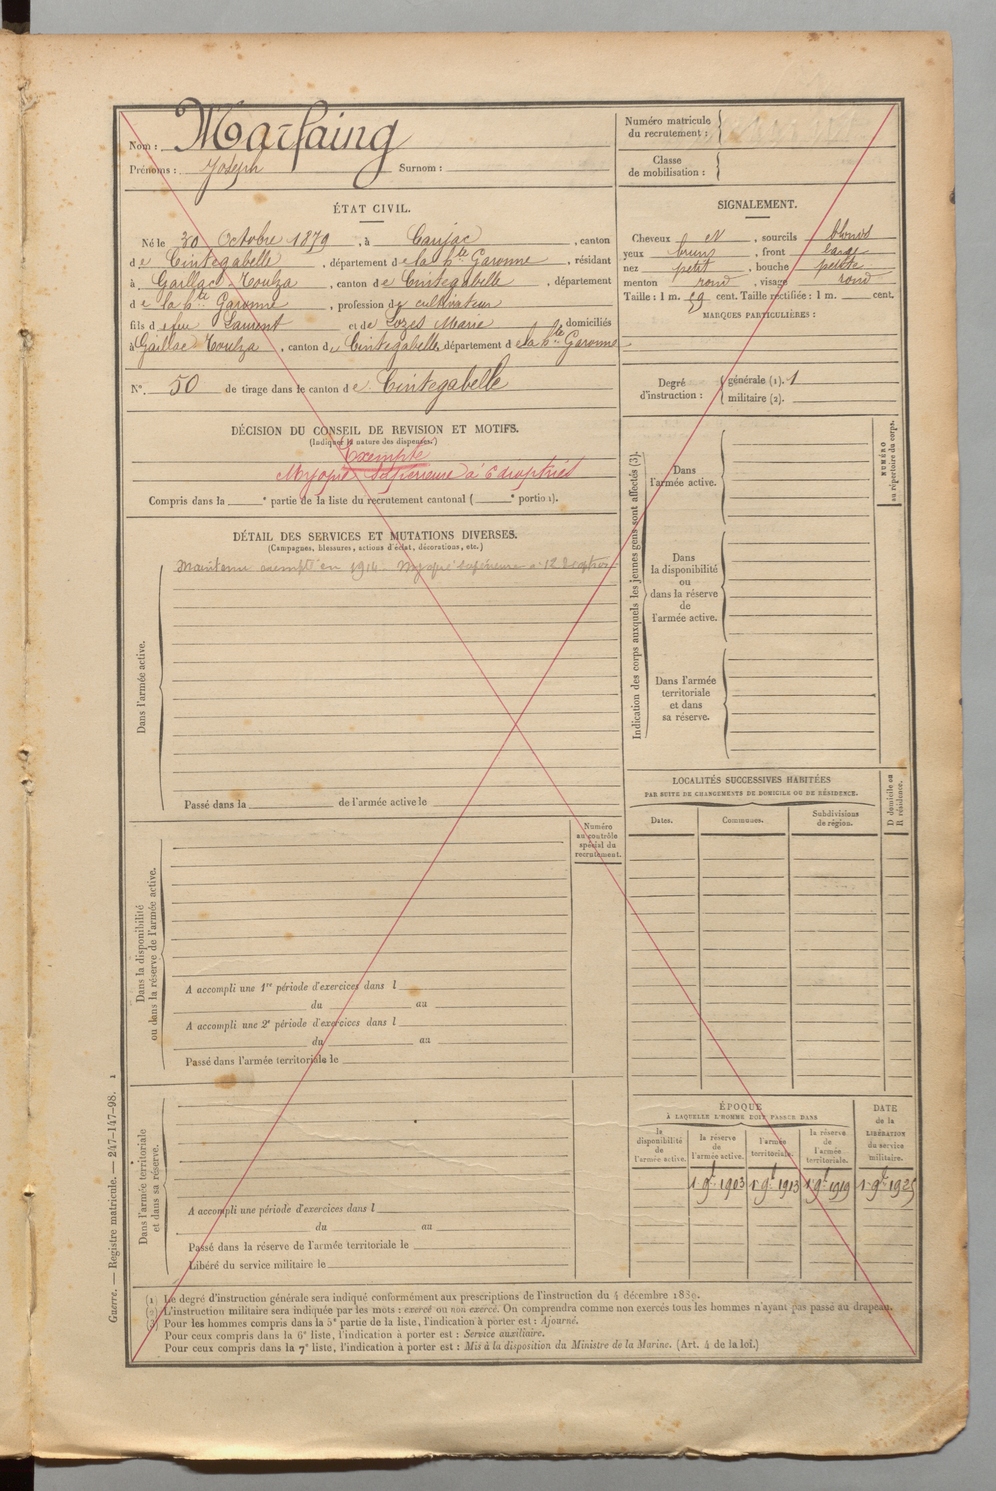 Nom : Marfaing
Prénoms : Joseph Surnom :
ÉTAT CIVIL.
Né le 30 Octobre 1879, à Caujac, canton
de Cintegabelle, département de la hte Garonne, résidant
à Gaillac-Toulza, canton de Cintegabelle, département
de la hte Garonne, profession de cultivateur
fils de feu Laurent et de Lozes Marie, domiciliés
à Gaillac-Toulza, canton de Cintegabelle, département de la hte Garonne
N°. 50 de tirage dans le canton de Cintegabelle
DÉCISION DU CONSEIL DE REVISION ET MOTIFS.
(Indiquer la nature des dispenses.)
Exempté
Myopie supérieure à 6 dioptries
Compris dans la e partie de la liste du recrutement cantonal ( e portion).
DÉTAIL DES SERVICES ET MUTATIONS DIVERSES.
(Campagnes, blessures, actions d'éclat, décorations, etc.)
Dans l'armée active.
Maintenu exempté en 1914. Myopie supérieure à 12 dioptries
Passé dans la de l'armée active le
Numéro
au contrôle
spécial du
recrutement.
Dans la disponibilité
ou dans la réserve de l'armée active.
A accompli une 1re période d'exercices dans l
du au
A accompli une 2e période d'exercices dans l
du au
Passé dans l'armée territoriale le
Dans l'armée territoriale
et dans sa réserve.
A accompli une période d'exercices dans l
du au
Passé dans la réserve de l'armée territoriale le
Libéré du service militaire le
Numéro matricule
du recrutement :
Classe
de mobilisation :
SIGNALEMENT.
Cheveux et, sourcils blonds
yeux bruns, front large
nez petit, bouche petite
menton rond, visage rond
Taille : 1 m. 59 cent. Taille rectifiée : 1 m. cent.
MARQUES PARTICULIÈRES :
Degré
d'instruction :
générale (1). 1
militaire (2).
Indication des corps auxquels les jeunes gens sont affectés (3).
Dans
l'armée active.
Dans
la disponibilité
ou
dans la réserve
de
l'armée active.
Dans l'armée
territoriale
et dans
sa réserve.
NUMÉRO
au répertoire du corps.
LOCALITÉS SUCCESSIVES HABITÉES
PAR SUITE DE CHANGEMENTS DE DOMICILE OU DE RÉSIDENCE.
Dates. Communes. Subdivisions
de région.
D domicile ou
R résidence.
ÉPOQUE
À LAQUELLE L'HOMME DOIT PASSER DANS
la
disponibilité
de
l'armée active.
la réserve
de
l'armée active.
l'armée
territoriale.
la réserve
de
l'armée
territoriale.
DATE
de la
LIBÉRATION
du service
militaire.
1 9bre 1903 1 9bre 1913 1 9bre 1919 1 9bre 1925
(1) Le degré d'instruction générale sera indiqué conformément aux prescriptions de l'instruction du 4 décembre 1889.
(2) L'instruction militaire sera indiquée par les mots : exercé ou non exercé. On comprendra comme non exercés tous les hommes n'ayant pas passé au drapeau.
(3) Pour les hommes compris dans la 5e partie de la liste, l'indication à porter est : Ajourné.
Pour ceux compris dans la 6e liste, l'indication à porter est : Service auxiliaire.
Pour ceux compris dans la 7e liste, l'indication à porter est : Mis à la disposition du Ministre de la Marine. (Art. 4 de la loi.)
Guerre. — Registre matricule. — 247-147-98. 1